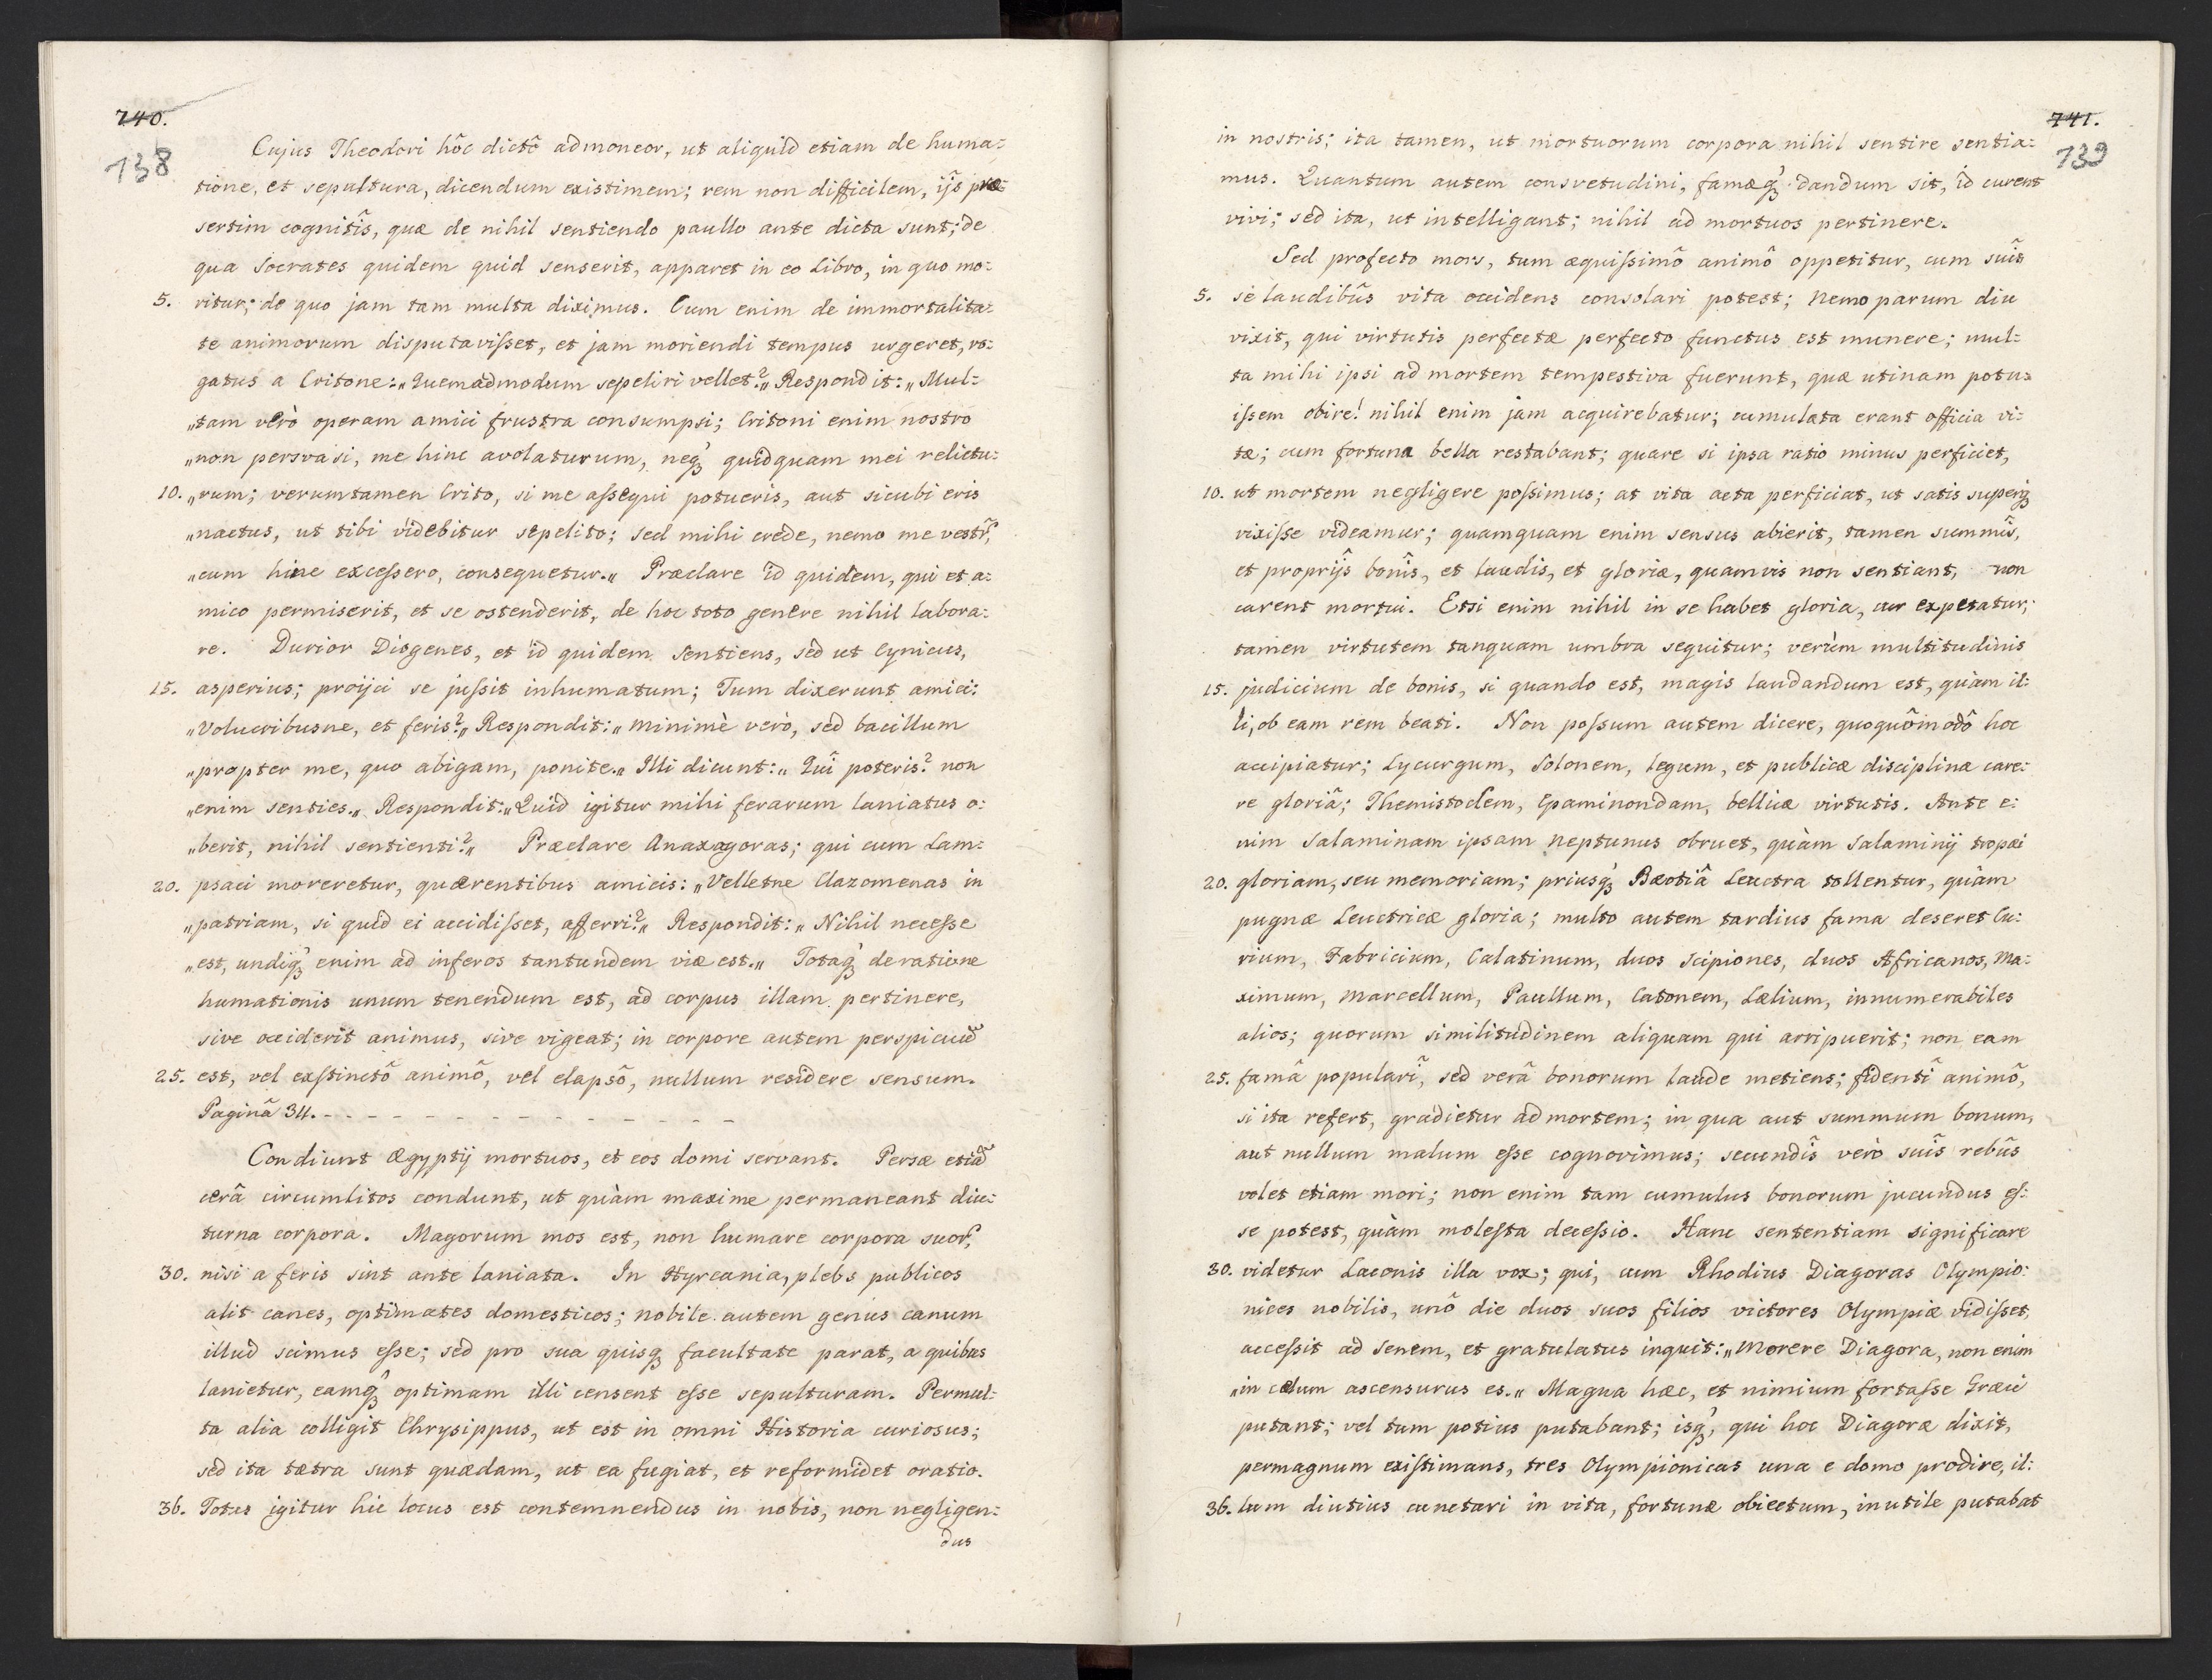 740.
138
Cujus Theodori hôc dictô admoneor, ut aliquid etiam de huma=
tione, et sepultura, dicendum existimem; rem non difficilem, ijs præ=
sertim cognitîs, quæ de nihil sentiendo paullo ante dicta sunt; de
qua Socrates quidem quid senserit, apparet in eo Libro, in quo mo=
5. ritur; de quo jam tam multa diximus. Cum enim de immortalita=
te animorum disputavißet, et jam moriendi tempus urgeret, ro=
gatus a Critone: „Quemadmodum sepeliri vellet?„ Respondit: „Mul=
„tam verò operam amici frustra consumpsi; Critoni enim nostro
„non persvasi, me hinc avolaturum, neq́ꝫ quidquam mei relictu=
10. „rum; verumtamen Crito, si me aßequi potueris, aut sicubi eris
„nactus, ut tibi videbitur sepelito; sed mihi crede, nemo me vestr̃,
„cum hinc exceßero, consequetur.„ Præclare id quidem, qui et a=
mico permiserit, et se ostenderit, de hoc toto genere nihil labora=
re. Durior Diogenes, et id quidem sentiens, sed ut Cynicus,
15. asperius; proijci se jußit inhumatum; Tum dixerunt amici:
„Volucribusne, et feris?„ Respondit: „Minimè verò, sed bacillum
„propter me, quo abigam, ponite.„ Illi dicunt: „Quî poteris? non
„enim senties.„ Respondit: „Quid igitur mihi ferarum laniatus o=
„berit, nihil sentienti?„ Præclare Anaxagoras; qui cum Lam=
20. psaci moreretur, quærentibus amicis: „Velletne Clazomenas in
„patriam, si quid ei accidißet, afferri?„ Respondit: „Nihil neceße
„est, undiq́ꝫ enim ad inferos tantundem viæ est.„ Totaq́ꝫ de ratione
humationis unum tenendum est, ad corpus illam pertinere,
sive occiderit animus, sive vigeat; in corpore autem perspicuũ
25. est, vel exstinctô animô, vel elapsô, nullum residere sensum.
Paginâ 34. - - - - - - - - - - - - -
Condiunt Ægyptij mortuos, et eos domi servant. Persæ etiã
cerâ circumlitos condunt, ut quàm maxime permaneant diu=
turna corpora. Magorum mos est, non humare corpora suor̃,
30. nisi a feris sint ante laniata. In Hyrcania, plebs publicos
alit canes, optimates domesticos; nobile autem genus canum
illud scimus eße; sed pro sua quisqꝫ facultate parat, a quibus
lanietur, eamq́ꝫ optimam illi censent eße sepulturam. Permul=
ta alia colligit Chrysippus, ut est in omni Historia curiosus;
sed ita tætra sunt quædam, ut ea fugiat, et reformidet oratio.
36. Totus igitur hic locus est contemnendus in nobis, non negligen=
dus
741.
139
in nostris; ita tamen, ut mortuorum corpora nihil sentire sentia=
mus. Quantum autem consvetudini, famæq́ꝫ dandum sit, id curent
vivi; sed ita, ut intelligant; nihil ad mortuos pertinere.
Sed profecto mors, tum æquißimô animô oppetitur, cum suîs
5. se laudibûs vita occidens consolari potest; Nemo parum diu
vixit, qui virtutis perfectæ perfecto functus est munere; mul=
ta mihi ipsi ad mortem tempestiva fuerunt, quæ utinam potu=
ißem obire! nihil enim jam acquirebatur; cumulata erant officia vi=
tæ; cum fortuna bella restabant; quare si ipsa ratio minus perficiet,
10. ut mortem negligere poßimus; at vita acta perficiat, ut satis superqꝫ
vixiße videamur; quamquam enim sensus abierit, tamen summîs,
et proprijs bonîs, et laudis, et gloriæ, quamvis non sentiant, non
carent mortui. Etsi enim nihil in se habet gloria, cur expetatur;
tamen virtutem tanquam umbra sequitur; verùm multitudinis
15. judicium de bonis, si quando est, magis laudandum est, quàm il=
li, ob eam rem beati. Non poßum autem dicere, quoquômodô hoc
accipiatur; Lycurgum, Solonem, legum, et publicæ disciplinæ care=
re gloriâ; Themistoclem, Epaminondam, bellicæ virtutis. Ante e=
nim Salaminam ipsam Neptunus obruet, quàm Salaminij tropæi
20. gloriam, seu memoriam; priusq́ꝫ Bæotiâ Leuctra tollentur, quàm
pugnæ Leuctricæ gloria; multo autem tardius fama deseret Cu=
rium, Fabricium, Calatinum, duos Scipiones, duos Africanos, Ma=
ximum, Marcellum, Paullum, Catonem, Lælium, innumerabiles
alios; quorum similitudinem aliquam qui arripuerit; non eam
25. famâ populari, sed verâ bonorum laude metiens; fidentî animô,
si ita refert, gradietur ad mortem; in qua aut summum bonum,
aut nullum malum eße cognovimus; secundîs verò suîs rebûs
volet etiam mori; non enim tam cumulus bonorum jucundus eſ=
se potest, quàm moleſta deceßio. Hanc sententiam significare
30. videtur Laconis illa vox; qui, cum Rhodius Diagoras Olympio=
nices nobilis, unô die duos suos filios victores Olympiæ vidißet,
acceßit ad senem, et gratulatus inquit: „Morere Diagora, non enim
„in cælum ascensurus es.„ Magna hæc, et nimium fortaße Græci
putant; vel tum potius putabant; isq́ꝫ, qui hoc Diagoræ dixit,
permagnum exiſtimans, tres Olympionicas una e domo prodire, il=
36. lum diutius cunctari in vita, fortunæ obiectum, inutile putabat